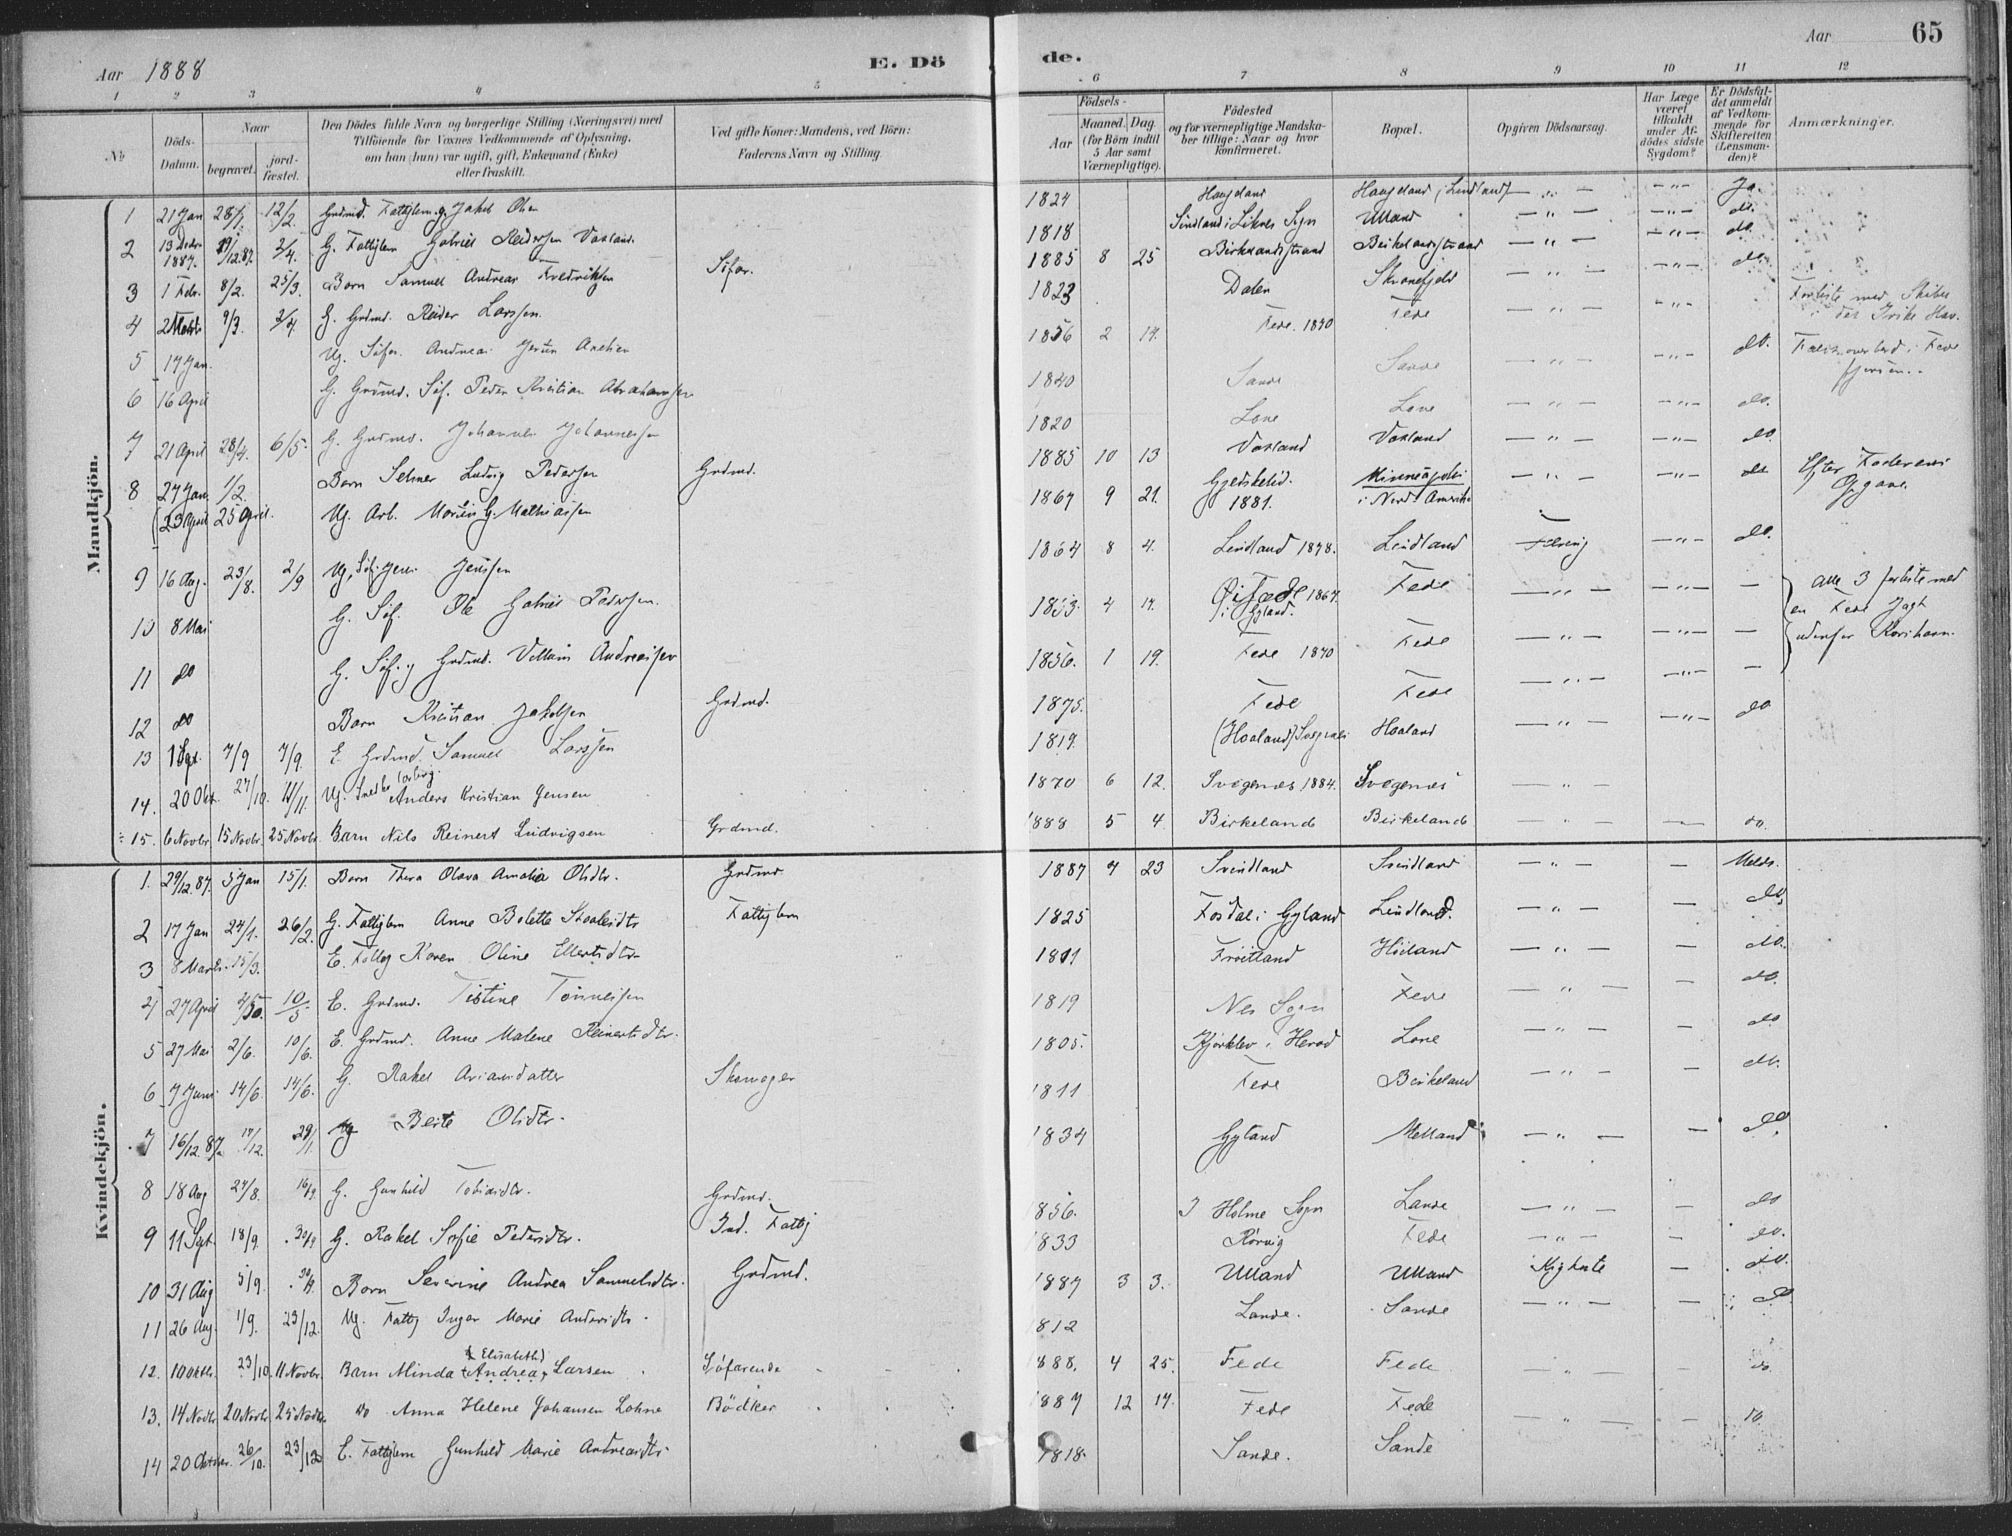 Aar 1888
E. Dö
de.
Aar
65
1 2 3 4 5 6 7 8 9 10 11 12
№
Döds-Datum.
Naar
begravet.
jord-fæstet.
Den Dödes fulde Navn og borgerlige Stilling (Næringsvei) med
Tilföiende for Voxnes Vedkommende af Oplysning,
om han (hun) var ugift, gift, Enkemand (Enke)
eller fraskilt.
Ved gifte Koner: Mandens, ved Börn:
Faderens Navn og Stilling.
Födsels-
Aar
Maaned. Dag.
(for Börn indtil
5 Aar samt
Værnepligtige).
Födested
og for værnepligtige Mandska-
ber tillige: Naar og hvor
konfirmeret.
Bopæl.
Opgiven Dödsaarsag.
Har Læge
været
tilkaldt
under Af-
dödes sidste
Sygdom?
Er Dödsfal-
det anmeldt
af Vedkom-
mende for
Skifteretten
(Lensman-
den)?
Anmærkninger.
Mandkjön.
1 21 Jan 28/1 12/2 Grdmd. Fattiglem. g. Jakob Olsen 1824 Haugeland Haugeland i Lindland — „ — — „ — Ja.
2 13 Decbr 1887. 19/12.87. 2/4. G. Fattiglem Gabriel Reidersen Vasland 1818 Sindland i Liknes Sogn Ulland — „ — — „ — do.
3 1 Febr. 8/2. 25/3. Barn Samuel Andreas Fredriksen Söfar. 1885 8 25 Birkelandsstrand Birkelandsstrand — „ — — „ — do.
4 2 Marts 9/3. 2/4 G. Grdmd. Reider Larssen. 1823 Dalen Skranefjeld — „ — — „ — do.
5 17 Jan. Ug. Söfar. Andreas Axelsen 1856 2 14. Fede. 1870 Fede — „ — — „ — Forliste med Skibet i det Hav.
6 16 April G. Grdmd. Söf. Peder Kristian Abrahamsen 1840 Sande Sande — „ — — „ — do. Faldt overbord i Fede fjorden.
7 21 April 28/4. 6/5. G. Grdmd. Johannes Johannessen 1820 Lone Lone — „ — — „ — do.
8 27 Jan. 1/2. Barn Selmer Ludvig Pedersen Grdmd. 1885 10 13 Vasland Vasland — „ — — „ — do
(23 April 25 April. Ug. Arb. Martin G. Mathiassen 1867 9 21. Gjedskelid. 1881. Minneapolis i Nord-Amerika — „ — — „ — do Efter Faderens Opgave.
9 16 Aug. 23/8. 2/9 Ug. Söf. Jens Jenssen 1864 8 4. Lindland 1878. Lindland Tæring — „ — do.
10 8 Mai G. Söf. Ole Gabriel Pedersen. 1853. 4 14. Öifæde 1867. i Gyland. Fede — „ — — „ — — Alle 3 forliste med
11 do G. Söf. g Grdmd. Vilhelm Andreassen 1856. 1 19. Fede 1870 Fede — „ — — „ — — en Fede Jagt
12 do Barn Kristian Jakobsen Grdmd. 1875. Fede Fede — „ — — „ — — udenfor Korshavn.
13 1 Sept. 7/9 7/9. E. Grdmd. Samuel Larssen 1819. (Haaland) Haaland — „ — — „ — do
14. 20 Okt. 27/10. 11/11. Ug. Snedker Anders Kristian Jensen 1870 6 12. Svegenæs 1884. Svegenæs — „ —
15. 6 Novbr 15 Novbr. 25 Novbr. Barn Nils Reinert Ludvigsen Grdmd. 1888 5 4. Birkeland Birkeland — „ — — do.
Kvindekjön.
1. 29/12.87. 5 Jan 15/1. Barn Thora Olava Amalia Olsdtr. Grdmd 1887 4 23 Svindland Svindland — „ — — Meldt.
2 17 Jan 24/1. 26/2. G. Fattiglem Anne Bolette Staalesdtr Fattiglem 1825 Fosdal i Gyland Lindland. — „ — — do.
3 8 Marts. 15/3. E. Fattig Karen Oline Ellertsdtr 1811 Fröitland Höiland — „ — — do.
4 27 April 10/5 E. Grdmd. Tistine Tönnessen 1819 Nes Sogn Fede — „ — do.
5 27 Mai 2/6. 10/6. E. Grdmd. Anne Malene Reinertsdtr. 1805. Kjörklev i Herad Lone — „ — — do
6 7 Juni 14/6. 14/6. G. Rakel Ariansdatter Skomager 1811 Fede Birkeland — „ — do.
7 16/12.87. 17/12. 29/1. Ug Berte Olsdtr. 1834 Gyland Melland — „ — — do.
8 18 Aug 24/8. 16/9. G. Gunhild Tobiasdtr. Grdmd. 1856. I Holme Sogn Lande — „ — — do
9 11 Sept. 18/9. 30/9 G. Rakel Sofie Pedersdtr. Ind. Fattig 1833 Rörvig Fede — „ — — do.
10 31 Aug 5/9. 30/9. Barn Severine Andrea Samuelsdtr. Grdmd. 1887 3 3. Ulland Ulland Kighoste — do.
11 26 Aug. 1/9. 23/12. Ug. Fattig Inger Marie Andersdtr. 1812 Lande. Sande — „ — — do
12. 10 Oktbr. 23/10. 11 Novbr. Barn Minda (Elisabeth) Andrea Larsen Söfarende 1888. 4 25. Fede Fede — „ — do.
13. 14 Novbr 20 Novbr. 25 Novbr. Do Anna Helene Johansen Lohne Bödker 1887 12 14. Fede Fede — „ — — do.
14 20 Oktober. 26/10. 23/12 E. Fattiglem Gunhild Marie Andreasdtr. 1818. Sande. Sande